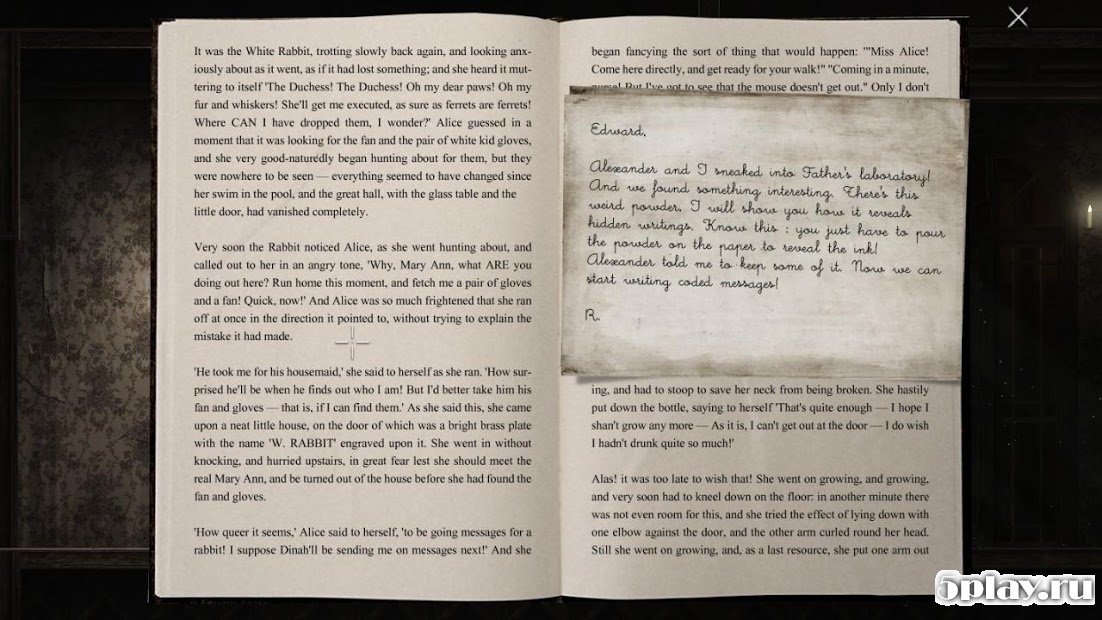 It was the White Rabbit, trotting slowly back again, and looking anx-
iously about as it went, as if it had lost something; and she heard it mut-
tering to itself 'The Duchess! The Duchess! Oh my dear paws! Oh my
fur and whiskers! She'll get me executed, as sure as ferrets are ferrets!
Where CAN I have dropped them, I wonder?' Alice guessed in a
moment that it was looking for the fan and the pair of white kid gloves,
and she very good-naturedly began hunting about for them, but they
were nowhere to be seen — everything seemed to have changed since
her swim in the pool, and the great hall, with the glass table and the
little door, had vanished completely.
Very soon the Rabbit noticed Alice, as she went hunting about, and
called out to her in an angry tone, 'Why, Mary Ann, what ARE you
doing out here? Run home this moment, and fetch me a pair of gloves
and a fan! Quick, now!' And Alice was so much frightened that she ran
off at once in the direction it pointed to, without trying to explain the
mistake it had made.
'He took me for his housemaid,' she said to herself as she ran. 'How sur-
prised he'll be when he finds out who I am! But I'd better take him his
fan and gloves — that is, if I can find them.' As she said this, she came
upon a neat little house, on the door of which was a bright brass plate
with the name 'W. RABBIT' engraved upon it. She went in without
knocking, and hurried upstairs, in great fear lest she should meet the
real Mary Ann, and be turned out of the house before she had found the
fan and gloves.
'How queer it seems,' Alice said to herself, 'to be going messages for a
rabbit! I suppose Dinah'll be sending me on messages next!' And she
began fancying the sort of thing that would happen: '"Miss Alice!
Come here directly, and get ready for your walk!" "Coming in a minute,
nurse! But I've got to see that the mouse doesn't get out." Only I don't
Edward,
Alexander and I sneaked into Father's laboratory!
And we found something interesting. There's this
weird powder. I will show you how it reveals
hidden writings. Know this : you just have to pour
the powder on the paper to reveal the ink!
Alexander told me to keep some of it. Now we can
start writing coded messages!
R.
ing, and had to stoop to save her neck from being broken. She hastily
put down the bottle, saying to herself 'That's quite enough — I hope I
shan't grow any more — As it is, I can't get out at the door — I do wish
I hadn't drunk quite so much!'
Alas! it was too late to wish that! She went on growing, and growing,
and very soon had to kneel down on the floor: in another minute there
was not even room for this, and she tried the effect of lying down with
one elbow against the door, and the other arm curled round her head.
Still she went on growing, and, as a last resource, she put one arm out
5play.ru